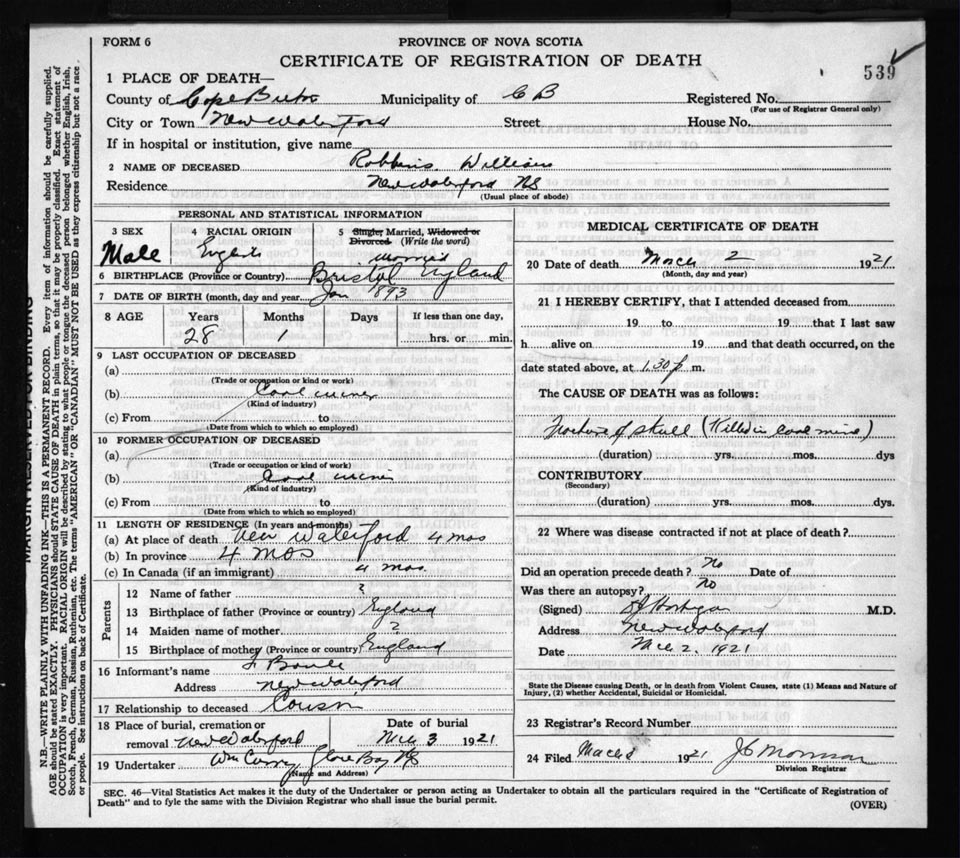 FORM 6
PROVINCE OF NOVA SCOTIA
CERTIFICATE OF REGISTRATION OF DEATH
539
1 PLACE OF DEATH—
County of Cape Breton Municipality of C B Registered No.
(For use of Registrar General only)
City or Town New Waterford Street House No.
If in hospital or institution, give name
2 NAME OF DECEASED Robbins William
Residence New Waterford NS
(Usual place of abode)
PERSONAL AND STATISTICAL INFORMATION
3 SEX 4 RACIAL ORIGIN 5 Single, Married, Widowed or Divorced (Write the word)
Male English Married
6 BIRTHPLACE (Province or Country) Bristol England
7 DATE OF BIRTH (month, day and year) Jan 1893
8 AGE Years Months Days If less than one day,
28 1 hrs. or min.
9 LAST OCCUPATION OF DECEASED
(a)
(Trade or occupation or kind or work)
(b) Coal miner
(Kind of industry)
(c) From to
(Date from which to which so employed)
10 FORMER OCCUPATION OF DECEASED
(a)
(Trade or occupation or kind of work)
(b) Coal miner
(Kind of industry)
(c) From to
(Date from which to which so employed)
11 LENGTH OF RESIDENCE (In years and months)
(a) At place of death New Waterford 4 mos
(b) In province 4 mos
(c) In Canada (if an immigrant) 4 mos.
Parents
12 Name of father ?
13 Birthplace of father (Province or country) England
14 Maiden name of mother ?
15 Birthplace of mother (Province or country) England
16 Informant's name
Address New Waterford
17 Relationship to deceased Cousin
18 Place of burial, cremation or Date of burial
removal New Waterford Mch 3 1921
19 Undertaker Wm Curry Glace Bay NS
(Name and Address)
MEDICAL CERTIFICATE OF DEATH
20 Date of death March 2 1921
(Month, day and year)
21 I HEREBY CERTIFY, that I attended deceased from
19 to 19 that I last saw
h alive on 19 and that death occurred, on the
date stated above, at 1.30 p m.
The CAUSE OF DEATH was as follows:
Fracture of skull (Killed in coal mine)
(duration) yrs. mos. dys
CONTRIBUTORY
(Secondary)
(duration) yrs. mos. dys.
22 Where was disease contracted if not at place of death?
Did an operation precede death? No Date of
Was there an autopsy? No
(Signed) M.D.
Address New Waterford
Date Mch 2. 1921
State the Disease causing Death, or in death from Violent Causes, state (1) Means and Nature of
Injury, (2) whether Accidental, Suicidal or Homicidal.
23 Registrar's Record Number
24 Filed 1921
Division Registrar
SEC. 46—Vital Statistics Act makes it the duty of the Undertaker or person acting as Undertaker to obtain all the particulars required in the "Certificate of Registration of
Death" and to fyle the same with the Division Registrar who shall issue the burial permit.
(OVER)
MARGIN RESERVED FOR BINDING
N.B.—WRITE PLAINLY WITH UNFADING INK—THIS IS A PERMANENT RECORD. Every item of information should be carefully supplied.
AGE should be stated EXACTLY. PHYSICIANS should STATE CAUSE OF DEATH in plain terms, so that it may be properly classified. Exact statement of
OCCUPATION is very important. RACIAL ORIGIN will be described by stating to what people or tongue the deceased person belonged whether English, Irish,
Scotch, French, German, Russian, Ruthenian, etc. The terms "AMERICAN" OR "CANADIAN" MUST NOT BE USED as they express citizenship but not a race
or people. See instructions on back of Certificate.